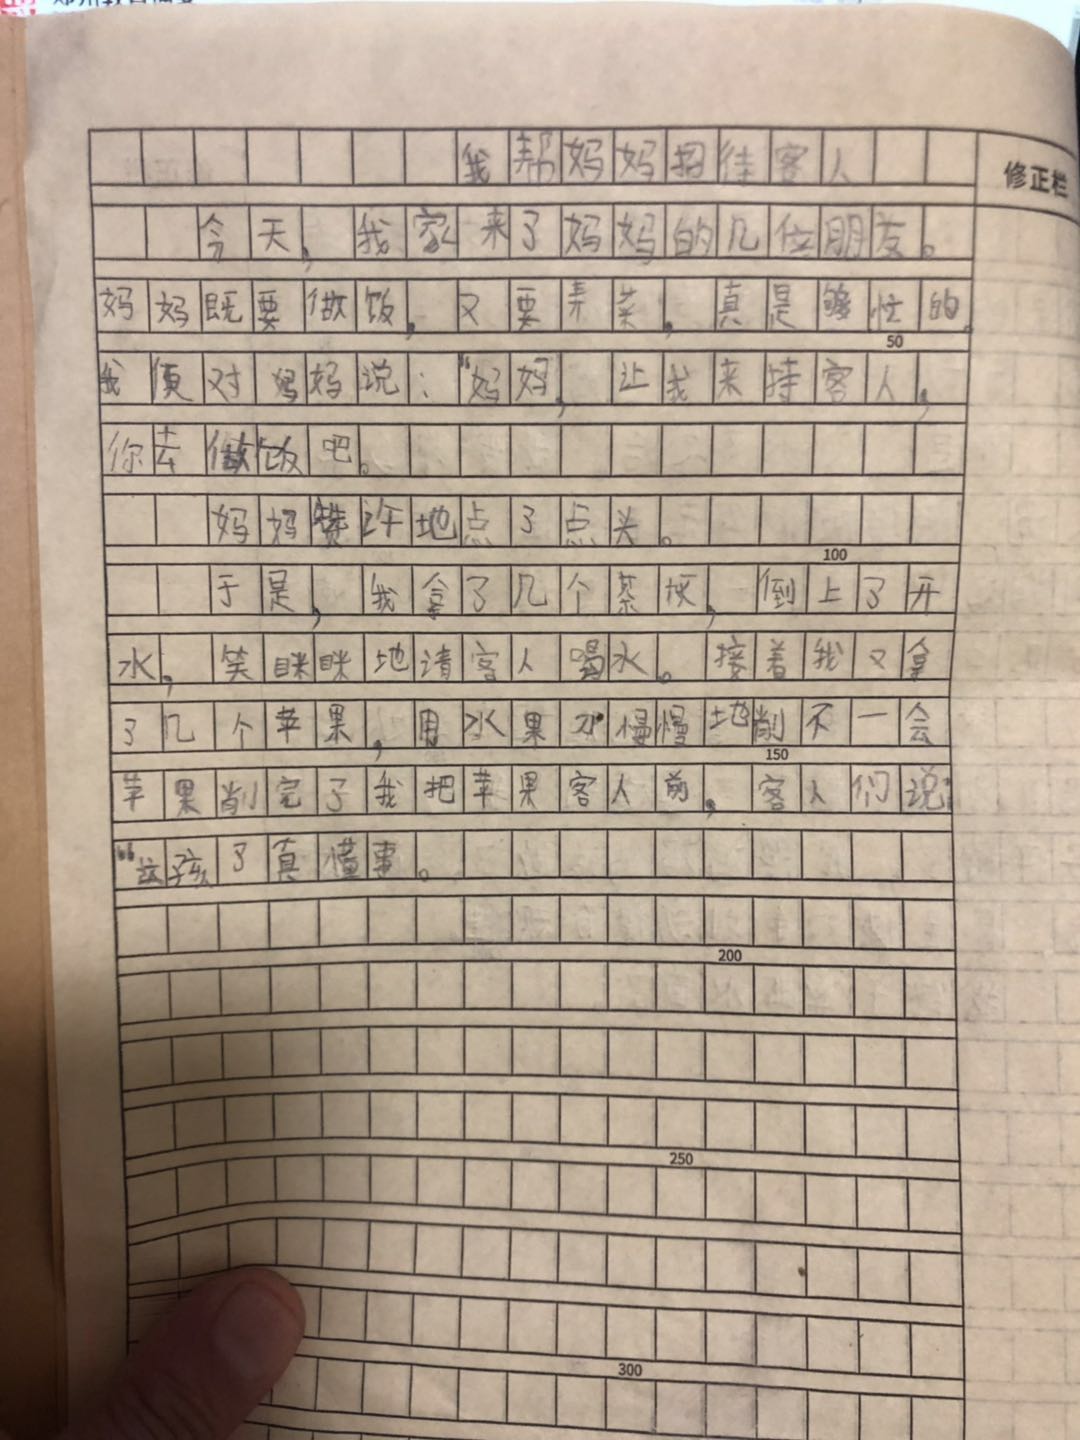 我帮妈妈招待客人
修正栏
今天，我家来了妈妈的几位朋友。
妈妈既要做饭，又要弄菜，真是够忙的。
50
我便对妈妈说：“妈妈，让我来持客人，
你去做饭吧。
妈妈赞许地点了点头。
100
于是，我拿了几个茶杯，倒上了开
水，笑眯眯地请客人喝水。接着我又拿
了几个苹果，用水果刀慢慢地削不一会
150
苹果削完了我把苹果客人前，客人们说：
“这孩了真懂事。
200
250
300